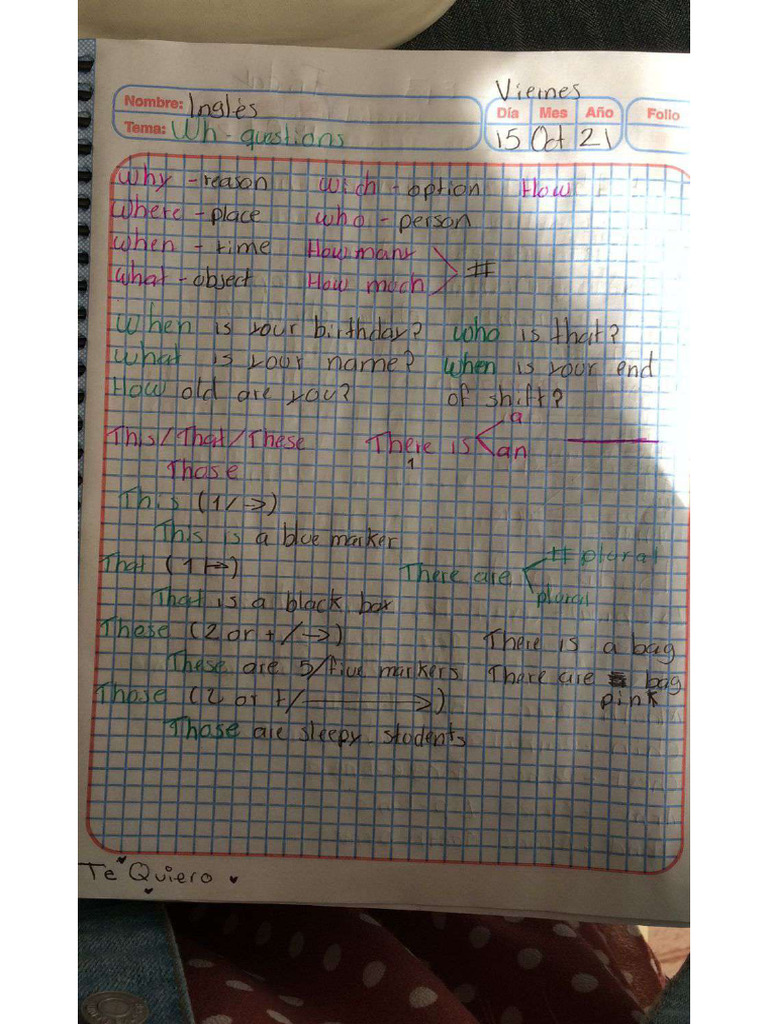 Viernes
Nombre: Inglés Día Mes Año Folio
Tema: Wh-questions 15 Oct 21
Why - reason Wich - option How
Where - place who - person
When - time How many
What - object How moch #
When is your birthday? who is that?
What is your name? When is your end
How old are you? of shift?
This/That/These There is a
Those 1 an
This (1/→)
This is a blue marker
That (1 ↦)
# plural
There are
plural
That is a black box
These (2 or +/→)
There is a bag
These are 5/five markers There are bag
Those (2 or +/→) pink
Those are sleepy students
Te Quiero